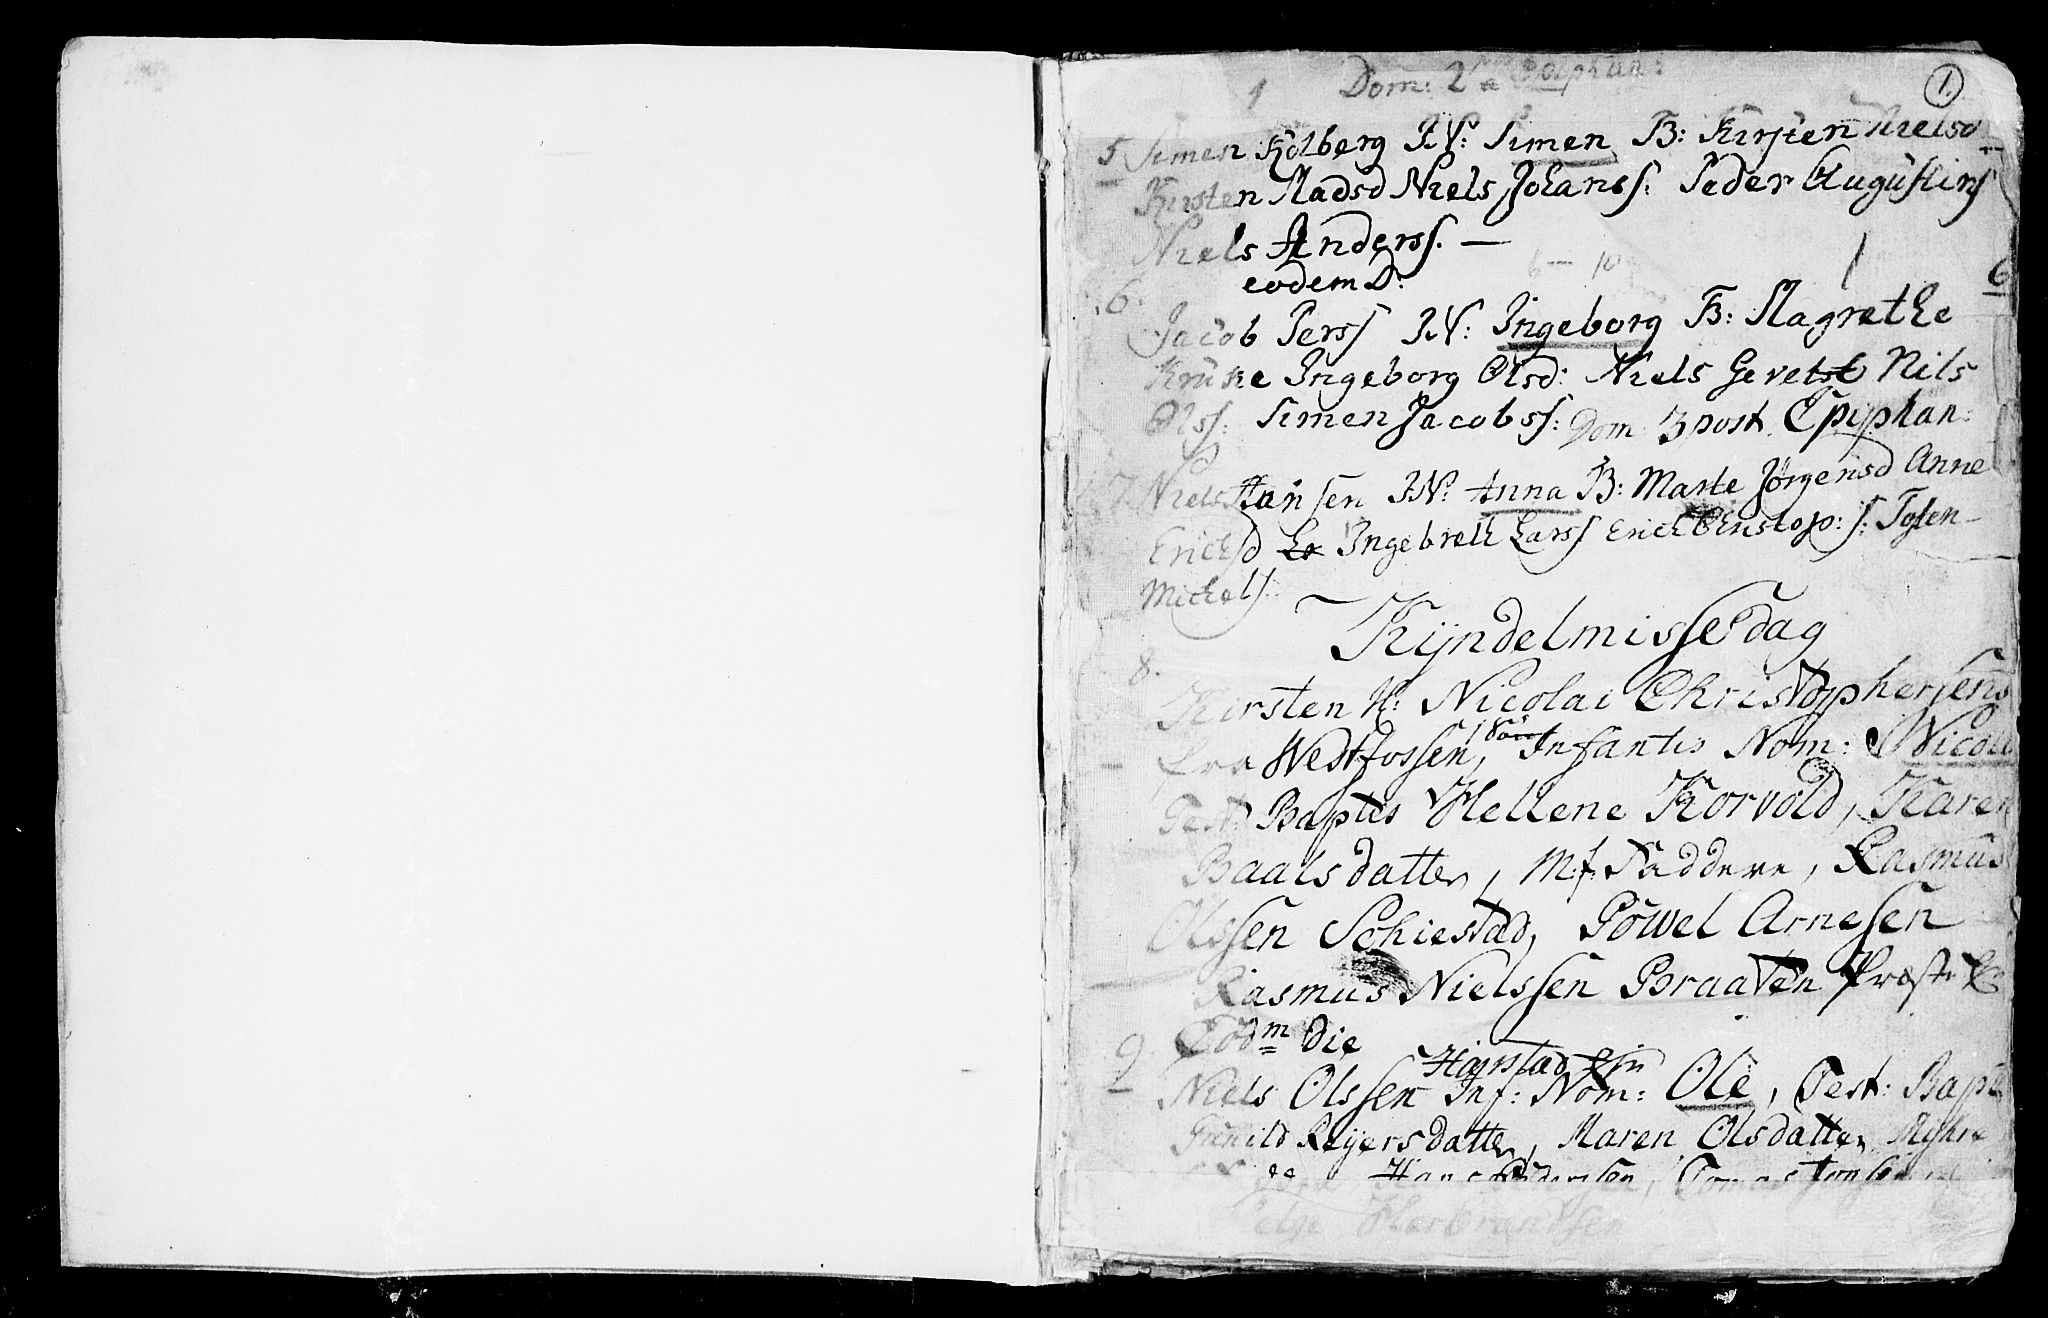 1.
Dom: 2 a Epiphan:
5 Simen Kolberg IN: Simen B: Kirsten Nielsd
Kirsten Madsd Niels Johanss: Peder Augustins
Niels Anderss. —
eodem D:
6 — 10
6. 6
Jacob Perss IN: Ingeborg B: Magrethe
Kruske Ingeborg Olsd: Niels Gevelst Nils
Olss: Simen Jacobss: Dom 3 post Epiphan:
7 Niels Hansen IN: Anna B: Marte Jørgensd Anne
Erichsd Er Ingebrett Larss Erich Christop: s: Tosten
Michels:
Kÿndelmisse dag
8. Kirsten K: Nicolai Christophersens
fra Westfossen, Infantis Nom: Nicolai
Test: Baptis Hellene Korvold, Karen
Baalsdatter, M:f: Faddere, Rasmus
Olssen Schiestad, Powel Arnesen
Rasmus Nielssen Braaten
Eodm die
9. Harstad Ejn
Niels Olssen Inf: Nom: Ole, Test: Bapt
Gunild Reÿersdatter, Maren Olsdatter Myhre
Hans Pedersen,
Helge Herbrandsen